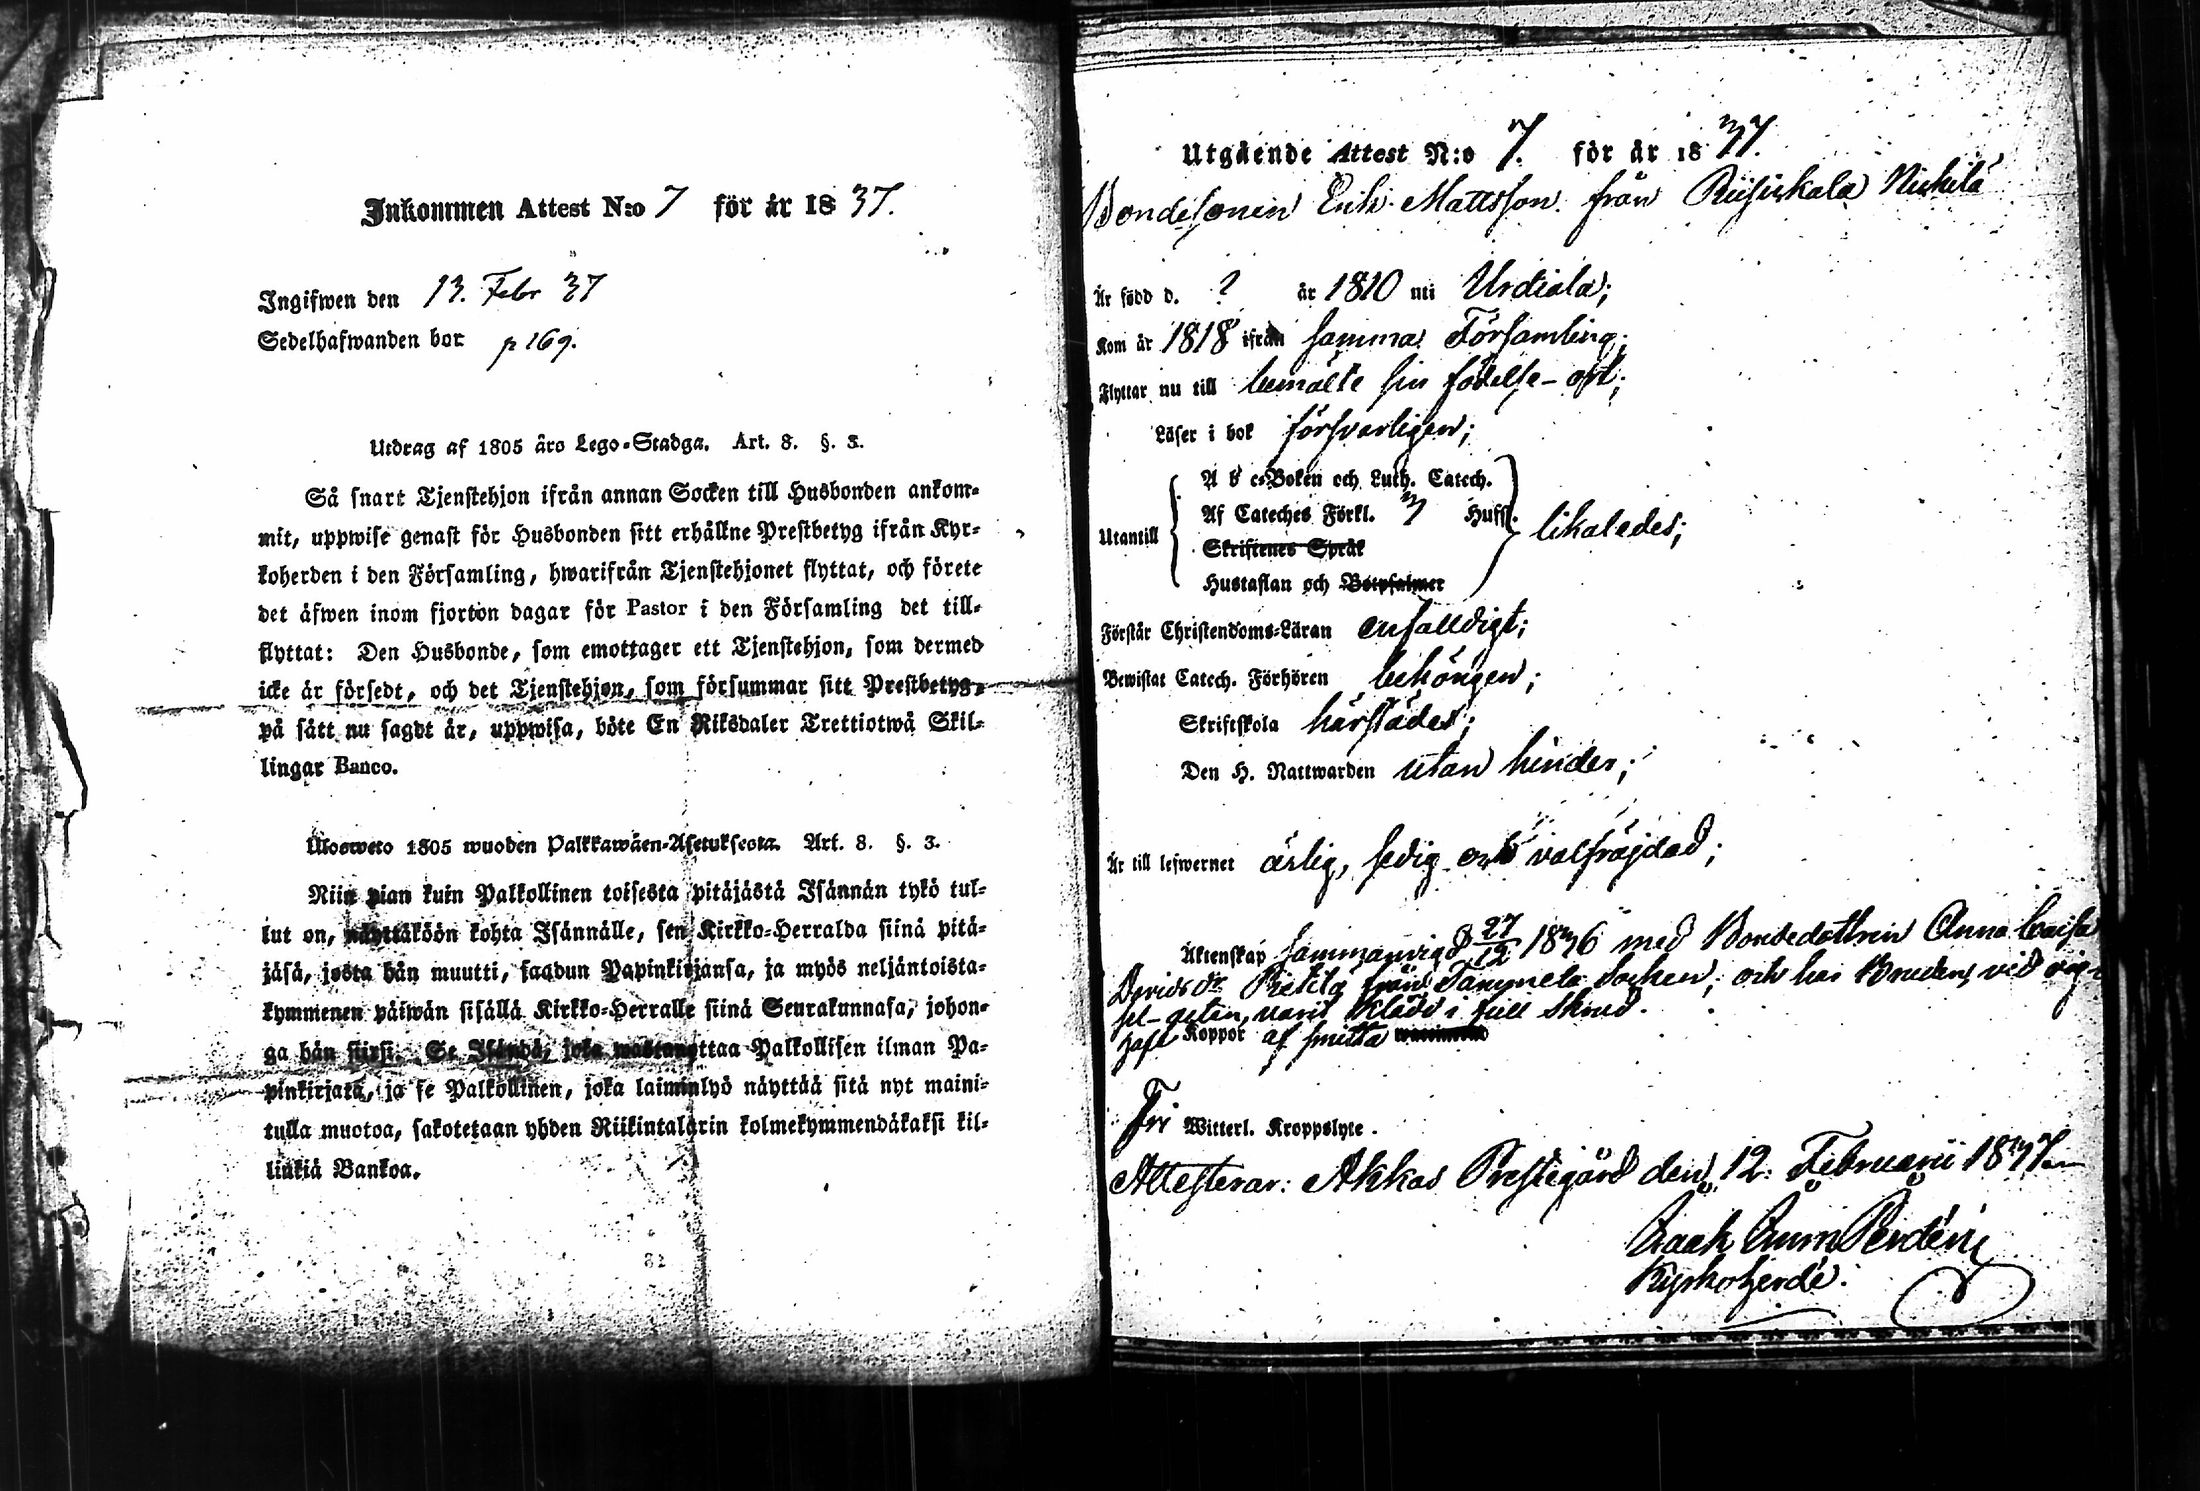 Inkommen Attest N:o 7 för år 1837.
Ingifwen den 13. Febr 37
Sedelhafwanden bor p 169.
Utdrag af 1805 års Lego-Stadga. Art. 8. §. 3.
Så snart Tjenstehjon ifrån annan Socken till Husbonden ankom-
mit, uppwise genast för Husbonden sitt erhållne Prestbetyg ifrån Kyr-
koherden i den Församling, hwarifrån Tjenstehjonet flyttat, och förete
det äfwen inom fjorton dagar för Pastor i den Församling det till-
flyttat: Den Husbonde, som emottager ett Tjenstehjon, som dermed
icke är försedt, och det Tjenstehjon, som försummar sitt Prestbetyg,
på sätt nu sagdt är, uppwisa, böte En Riksdaler Trettiotwå Skil-
lingar Banco.
Ulosweto 1805 wuoden Palkkawäen-Asetuksesta. Art. 8. §. 3.
Niin pian kuin Palkollinen toisesta pitäjästä Isännän tykö tul-
lut on, näyttäköön kohta Isännälle, sen Kirkko-Herralda siinä pitä-
jäsä, josta hän muutti, saadun Papinkirjansa, ja myös neljäntoista-
kymmenen päiwän sisällä Kirkko-Herralle siinä Seurakunnasa, johon-
ga hän siirsi. Se Isändä, joka wastanottaa Palkollisen ilman Pa-
pinkirjata, ja se Palkollinen, joka laiminlyö näyttää sitä nyt maini-
tulla muotoa, sakotetaan yhden Riikintalarin kolmekymmendäkaksi kil-
linkiä Bankoa.
Utgående Attest N:o 7. för år 1837.
Bondesonen Erik Mattsson från Riisikkala Nickilä
Är född d. ? år 1810 uti Urdiala;
Kom år 1818 ifrån samma Församling;
Flyttar nu till bemälte sin födelse-ort;
Läser i bok försvarligen;
A b c-Boken och Luth. Catech.
Af Cateches Förkl. 3 Hufst.
Utantill likaledes;
Skriftenes Språk
Hustaflan och Botpsalmer
Förstår Christendoms-Läran enfalldigt;
Bewistat Catech. Förhören behörigen;
Skriftskola härstädes;
Den H. Nattwarden utan hinder;
Är till lefwernet ärlig, sedig och välfräjdad;
Äktenskap sammanvigd 27/12 1836 med Bondedottren Anna Caisa
Davidsdr Pietilä från Tammela Socken; och har Bruden, vid vig-
sel-acten, varit klädd i full skrud.
Haft Koppor af smitta
Fri Witterl. Kroppslyte.
Attesterar: Akkas Prestegård den 12. Februarii 1837.
Kyrkoherde.